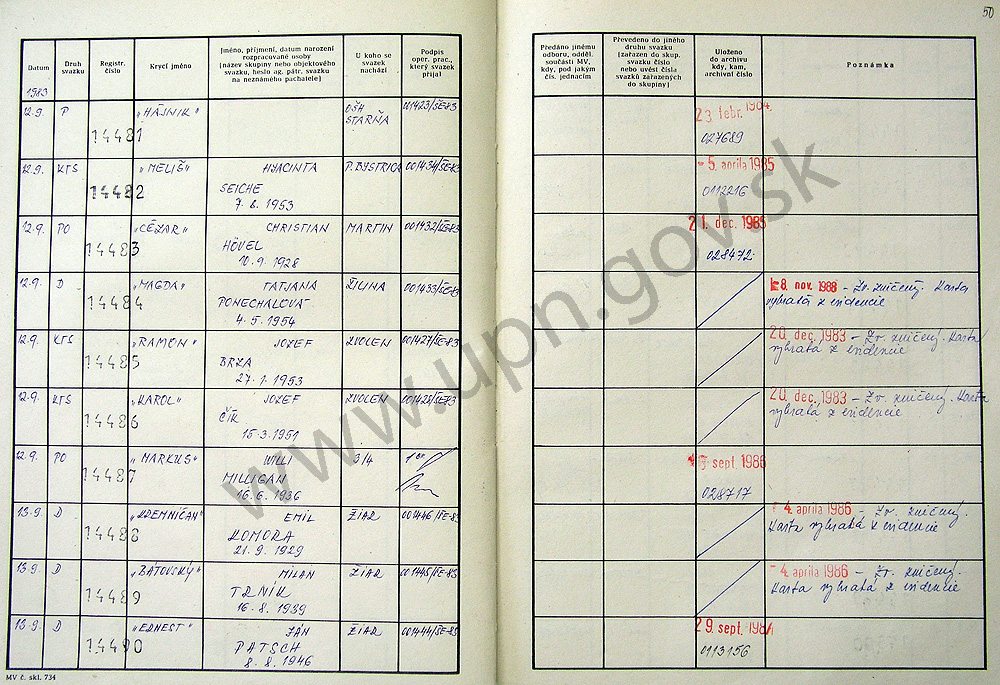 50
Datum
Druh svazku
Registr. číslo
Krycí jméno
Jméno, příjmení, datum narození
rozpracované osoby
(název skupiny nebo objektového
svazku, heslo ag. pátr. svazku
na neznámého pachatele)
U koho se
svazek
nachází
Podpis
oper. prac.,
který svazek
přijal
Předáno jinému
odboru, odděl.
součásti MV,
kdy, pod jakým
čís. jednacím
Převedeno do jiného
druhu svazku
(zařazen do skup.
svazku číslo
nebo uvést čísla
svazků zařazených
do skupiny)
Uloženo
do archivu
kdy, kam,
archivní číslo
Poznámka
1983
12.9. P 14481 "HÁJNIK" OŠH STARŇA 001423/ŠE-83 23 febr. 1984.
027689
12.9. KTS 14482 "MELIŠ" HYACINTA P. BYSTRICA 001434/ŠE-83 5. apríla 1985
SEICHE 0112216
7. 8. 1953
12.9. PO 14483 "CÉZAR" CHRISTIAN MARTIN 001432/ŠE-83 21. dec. 1985
HÖVEL 028472
10. 9. 1928
12.9. D 14484 "MAGDA" TATJANA ŽILINA 001433/ŠE-83 8. nov. 1988 - Zv. zničený. Karta
PONECHALOVÁ vybratá z evidencie
4. 5. 1954
12.9. KTS 14485 "RAMON" JOZEF ZVOLEN 001427/ŠE-83 20. dec. 1983 - Zv. zničený. Karta
BRZA vybratá z evidencie
27. 1. 1953
12.9. KTS 14486 "KAROL" JOZEF ZVOLEN 001428/ŠE-83 20. dec. 1983 - Zv. zničený. Karta
ČÍK vybratá z evidencie
15. 3. 1951
12.9. PO 14487 "MARKUS" WILLI 3/4 sept. 1986
MILLIGAN 028717
16. 6. 1936
13.9. D 14488 "KREMNIČAN" EMIL ŽIAR 001446/ŠE-83 4. apríla 1986 - Zv. zničený.
KOMORA Karta vybratá z evidencie
21. 9. 1929
13.9. D 14489 "BÁTOVSKÝ" MILAN ŽIAR 001445/ŠE-83 4. apríla 1986 - Zv. zničený.
TRNÍK Karta vybratá z evidencie
16. 8. 1939
13.9. D 14490 "ERNEST" JÁN ŽIAR 001444/ŠE-83 29. sept. 1984
PATSCH 0113156
8. 8. 1946
MV č. skl. 734
www.upn.gov.sk